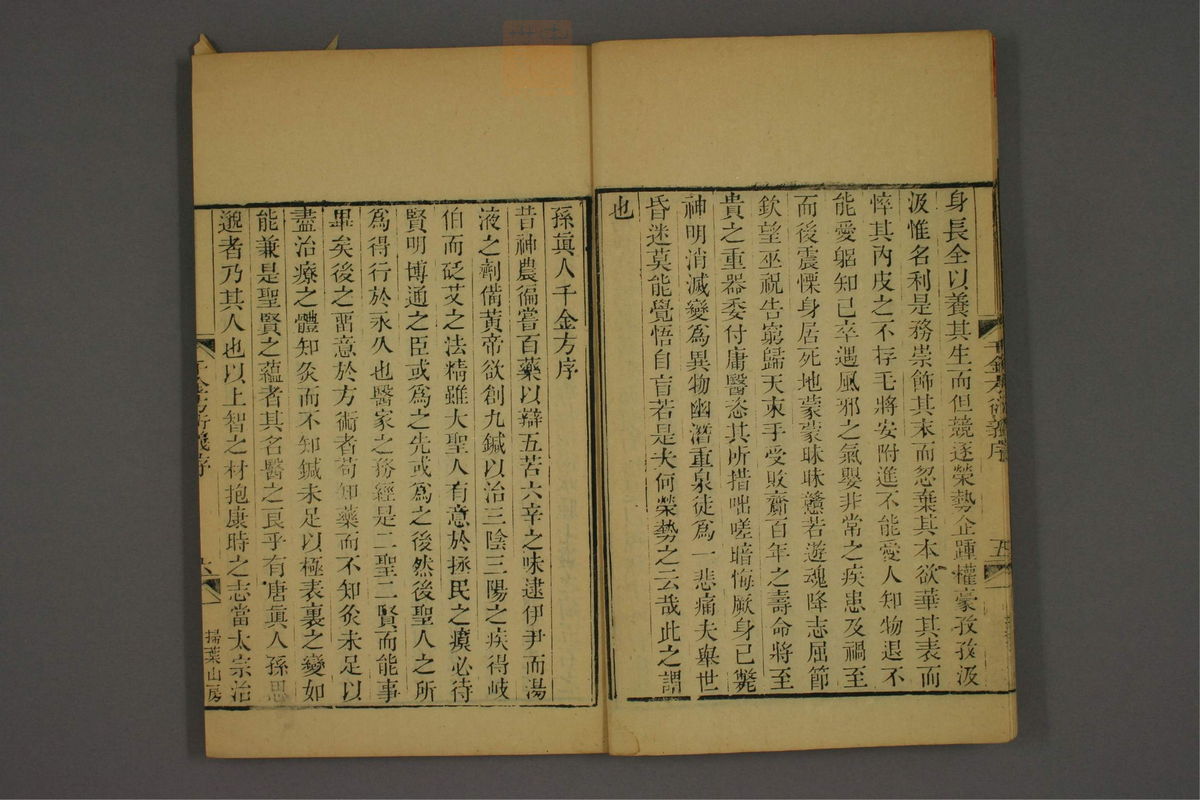 身長全以養其生而但競逐榮勢企踵權豪孜孜汲
汲惟名利是務崇飾其末而忽棄其本欲華其表而
悴其內皮之不存毛將安附進不能愛人知物退不
能愛躬知己卒遇風邪之氣嬰非常之疾患及禍至
而後震慄身居死地蒙蒙昧昧戇若遊魂降志屈節
欽望巫祝告窮歸天束手受敗齎百年之壽命將至
貴之重器委付庸醫恣其所措咄嗟暗悔厥身已斃
神明消滅變爲異物幽潛重泉徒爲一悲痛夫舉世
昏迷莫能覺悟自盲若是夫何榮勢之云哉此之謂
也
千金方衍義序
五
孫眞人千金方序
昔神農徧嘗百藥以辯五苦六辛之味逮伊尹而湯
液之劑備黃帝欲創九鍼以治三陰三陽之疾得岐
伯而砭艾之法精雖大聖人有意於拯民之瘼必待
賢明博通之臣或爲之先或爲之後然後聖人之所
爲得行於永久也醫家之務經是二聖二賢而能事
畢矣後之畱意於方術者苟知藥而不知灸未足以
盡治療之體知灸而不知鍼未足以極表裏之變如
能兼是聖賢之蘊者其名醫之良乎有唐眞人孫思
邈者乃其人也以上智之材抱康時之志當太宗治
千金方衍義序
六
掃葉山房